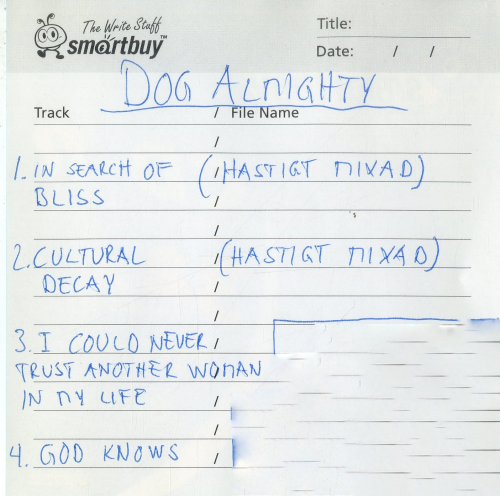 The Write Stuff
smartbuy™
Title:
Date: / /
DOG ALMIGHTY
Track / File Name
/
1. IN SEARCH OF / (HASTIGT MIXAD)
BLISS /
/
2. CULTURAL / (HASTIGT MIXAD)
DECAY /
/
3. I COULD NEVER /
TRUST ANOTHER WOMAN /
IN MY LIFE /
/
4. GOD KNOWS /